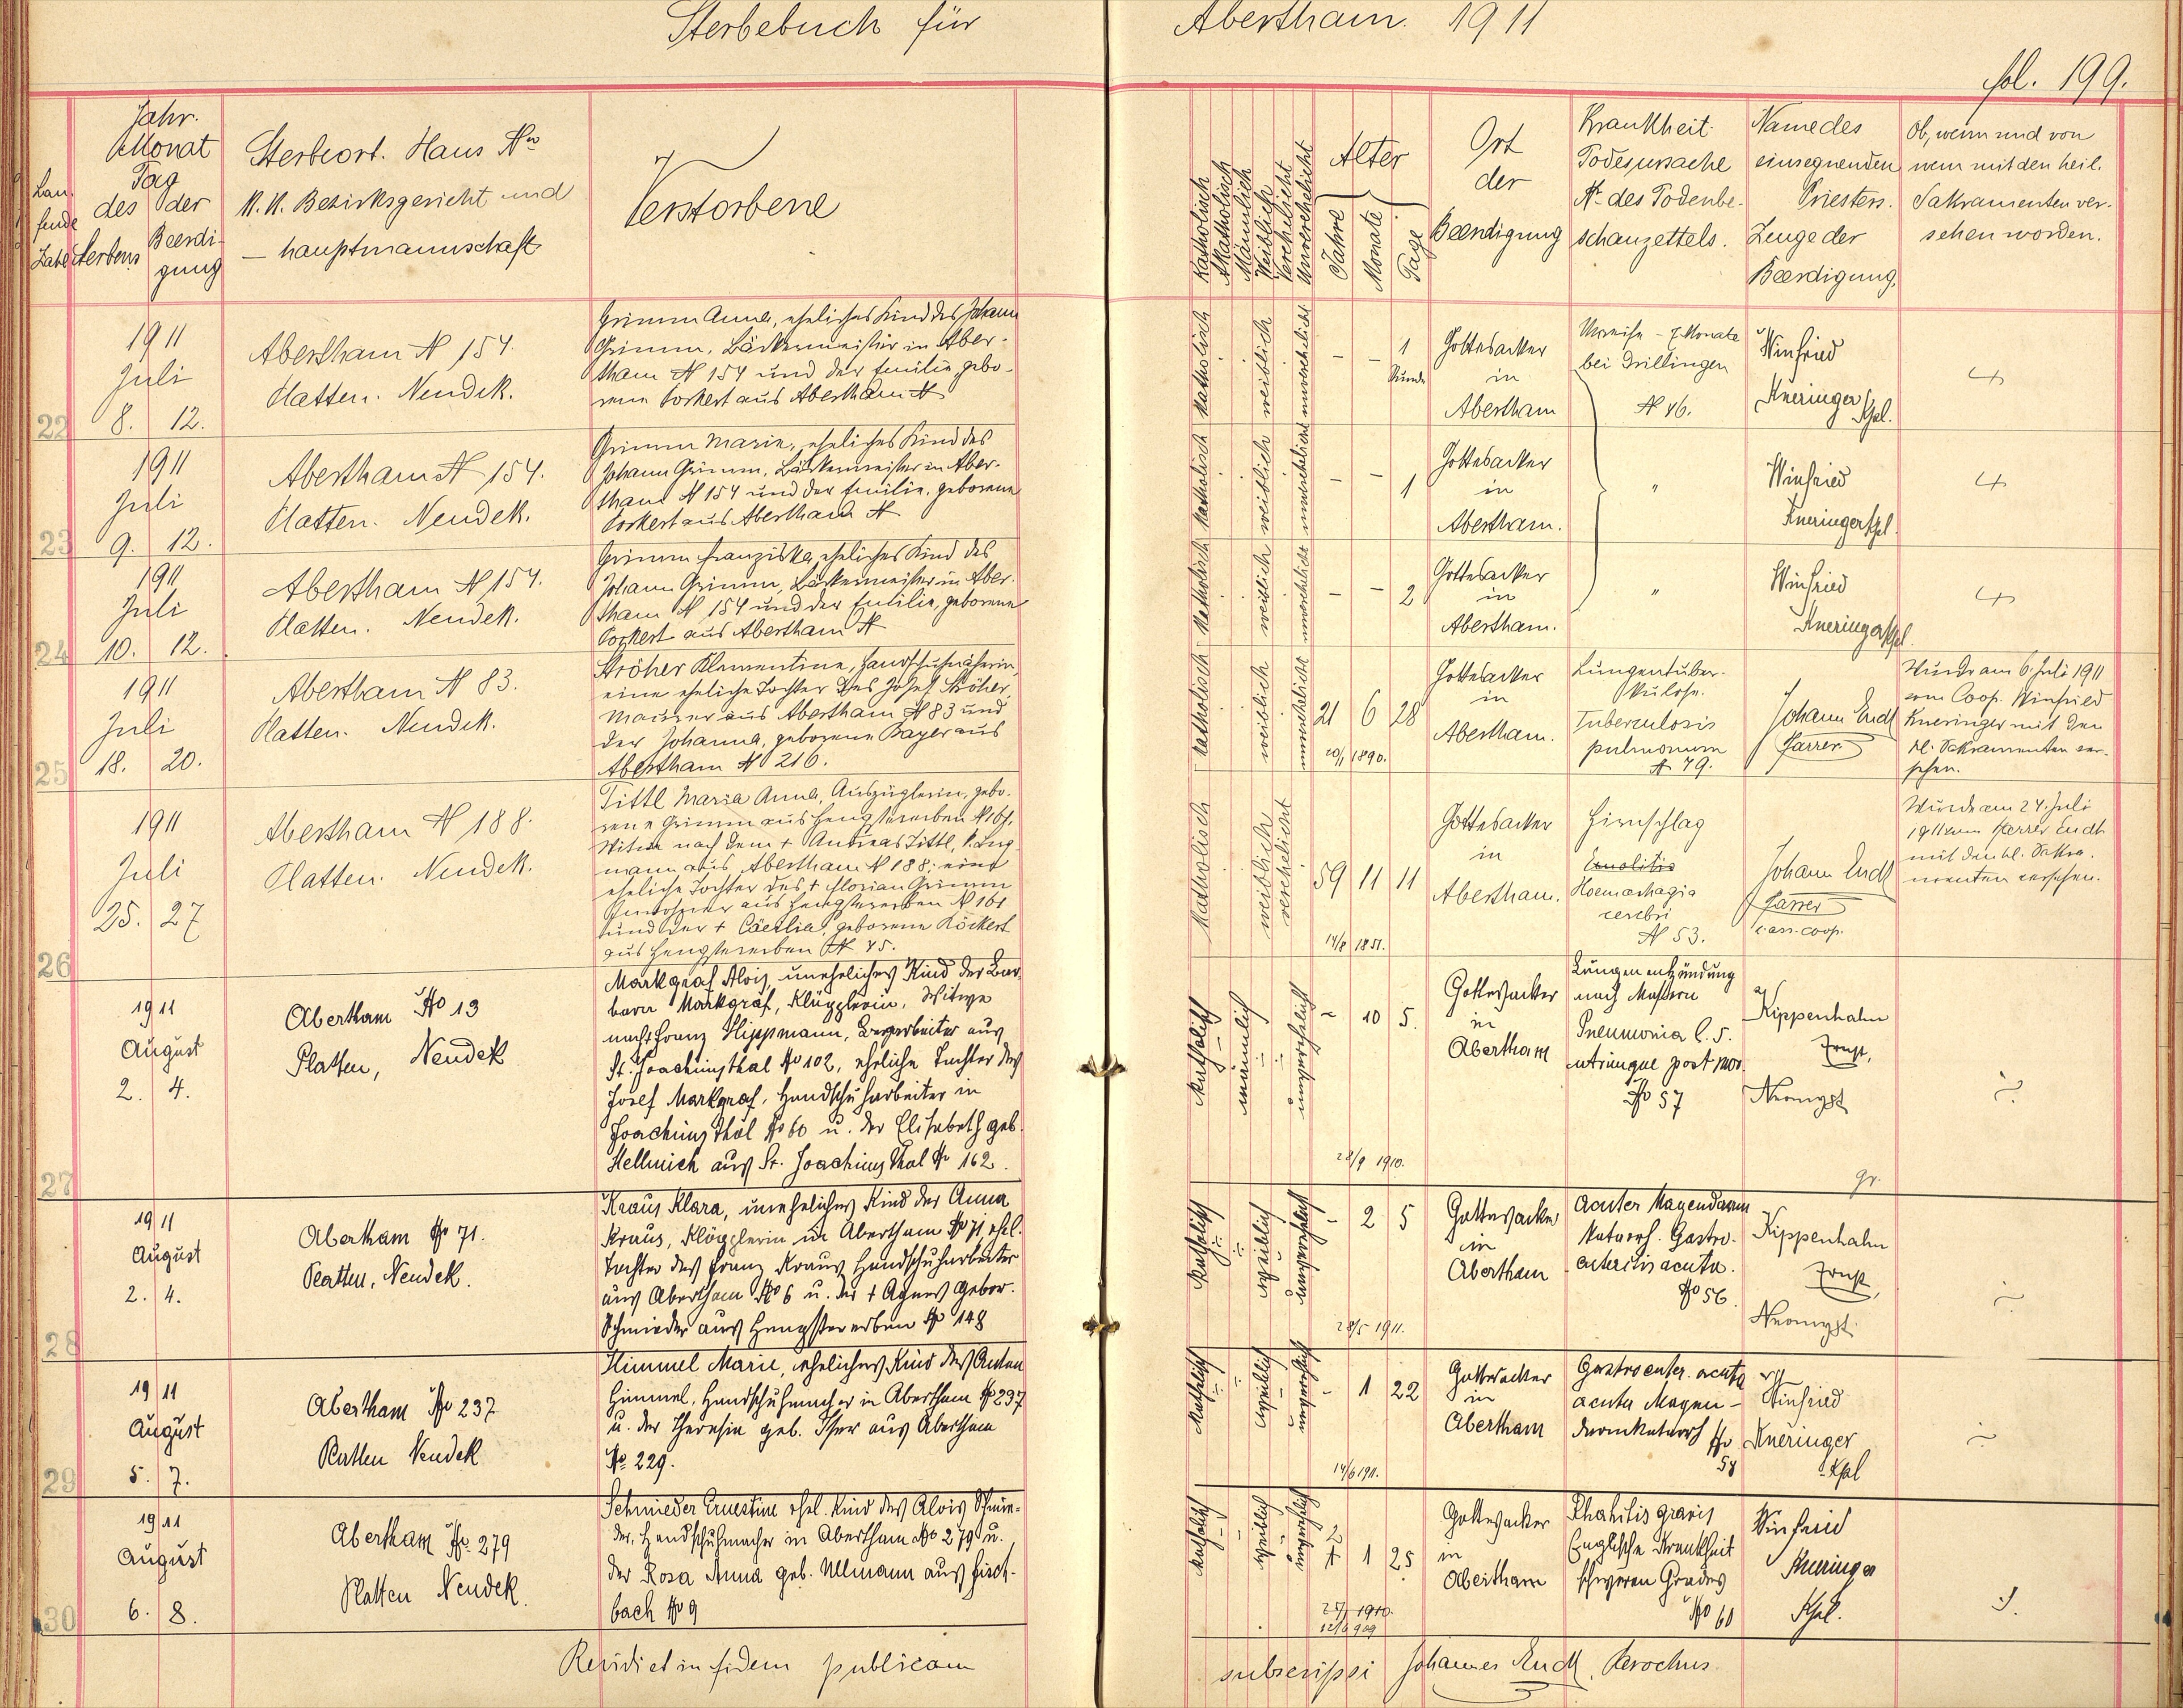 Sterbebuch für Abertham. 1911
fol. 199.
Lau-
fende
Zahl
Jahr.
Monat
Tag
des der
Sterbens Beerdi-
gung
Sterbeort. Haus No
K.K. Bezirksgericht und
— hauptmannschaft
Verstorbene
Katholisch
Akatholisch
Mänlich
Weiblich
Verehelicht
Unverehelicht
Alter
Jahre
Monate
Tage
Ort
der
Beerdigung
Krankheit.
Todesursache
No des Todenbe-
schauzettels.
Name des
einsegnenden
Priesters.
Zeuge der
Beerdigung.
Ob, wenn und von
wem mit den heil.
Sakramenten ver-
sehen worden.
22
1911
Juli
8. 12.
Abertham N 154.
Platten. Neudek.
Grimm Anna, eheliches Kind des Johann
Grimm, Bäckermeister in Aber-
tham N 154 und der Emilie gebo-
rene Porkert aus Abertham N
katholisch
weiblich
unverehelicht
– – 1
Stunde
Gottesacker
in
Abertham
Unreife – 7 Monate
bei Drillingen
N 46.
Winfried
Kneringer Kpl.
23
1911
Juli
9. 12.
Abertham N 154.
Platten. Neudek.
Grimm Marie, eheliches Kind des
Johann Grimm, Bäckermeister in Aber-
tham N 154 und der Emilie, geborene
Porkert aus Abertham N
katholisch
weiblich
unverehelicht
– – 1
Gottesacker
in
Abertham.
"
Winfried
Kneringer Kpl.
24
1911
Juli
10. 12.
Abertham N 154.
Platten. Neudek.
Grimm Franziska, eheliches Kind des
Johann Grimm, Bäckermeister in Aber-
tham N 154 und der Emilie, geborene
Porkert aus Abertham N
katholisch
weiblich
unverehelicht
– – 2
Gottesacker
in
Abertham.
"
Winfried
Kneringer Kpl.
25
1911
Juli
18. 20.
Abertham N 83.
Platten. Neudek.
Ströher Klementine, Handschuhnäherin,
eine eheliche Tochter des Josef Ströher,
Maurer aus Abertham N 83 und
der Johanna, geborene Bayer aus
Abertham N 216.
katholisch
weiblich
unverehelicht
21 6 28
20/1 1890.
Gottesacker
in
Abertham.
Lungentuber-
kulose.
Tuberculosis
pulmonum
N 49.
Johann Endt
Pfarrer
Wurde am 6. Juli 1911
vom Coop. Winfried
Kneringer mit den
hl. Sakramenten ver-
sehen.
26
1911
Juli
25. 27
Abertham N 188.
Platten. Neudek.
Tittl Maria Anna, Auszüglerin, gebo-
rene Grimm aus Hengstererben N 161.
Witwe nach dem + Andreas Tittl,
mann aus Abertham N 188; eine
eheliche Tochter des + Florian Grimm
aus Hengstererben N 161
und der + Cäcilia, geborene Röckert
aus Hengstererben N 45.
katholisch
weiblich
verehelicht
59 11 11
14/8 1851.
Gottesacker
in
Abertham.
Hirnschlag
Hoemorhagia
cerebri
N 53.
Johann Endt
Pfarrer
c. ass. coop.
Wurde am 24. Juli
1911 vom Pfarrer Endt
mit den hl. Sakra-
menten versehen.
27
1911
August
2. 4.
Abertham No 13
Platten, Neudek
Markgraf Alois, uneheliches Kind der Bar-
bara Markgraf, Klöpplerin, Witwe
nach Franz Hippmann, Bergarbeiter aus
St. Joachimsthal No 102, eheliche Tochter des
Josef Markgraf, Handschuharbeiter in
Joachimsthal No 60 u. der Elisabeth geb.
Hellmich aus St. Joachimsthal No 162.
katholisch
männlich
unverehelicht
– 10 5.
28/9 1910.
Gottesacker
in
Abertham
Lungenentzündung
nach Masern
Pneumonia l. s.
utrinque post mor.
No 57
Kippenhahn
Ernst,
Neomyst
28
1911
August
2. 4.
Abertham No 71.
Platten, Neudek.
Kraus Klara, uneheliches Kind der Anna
Kraus, Klöpplerin in Abertham No 71, ehel.
Tochter des Franz Kraus Handschuharbeiter
aus Abertham No 6 u. der + Agnes gebor.
Schmieder aus Hengstererben No 148
katholisch
weiblich
unverehelicht
– 2 5
28/5 1911.
Gottesacker
in
Abertham
Acuter Magendarm
Katarrh. Gastro-
enteritis acuta.
No 56.
gr.
Kippenhahn
Ernst,
Neomyst.
29
1911
August
5. 7.
Abertham No 237
Platten Neudek
Himmel Marie, eheliches Kind des Anton
Himmel, Handschuhmacher in Abertham No 237
u. der Theresia geb. Iser aus Abertham
No 229.
katholisch
weiblich
unverehelicht
– 1 22
14/6 1911.
Gottesacker
in
Abertham
Gastroenter. acuta
acuter Magen-
darmkatarrh No
58
Winfried
Kneringer
Kpl
30
1911
August
6. 8.
Abertham No. 279
Platten Neudek.
Schmieder Ernestine ehel. Kind des Alois Schmie-
der, Handschuhmacher in Abertham No 279 u.
der Rosa Anna geb. Ullmann aus Fisch-
bach No 9
katholisch
weiblich
unverehelicht
2
1 1 25
12/6 909
Gottesacker
in
Abertham
Rhahitis gravis
Englische Krankheit
schweren Grades
No 60
Winfried
Kneringer
Kpl.
Revidi et in fidem publicam subscripsi Johannes Endt, Parochus